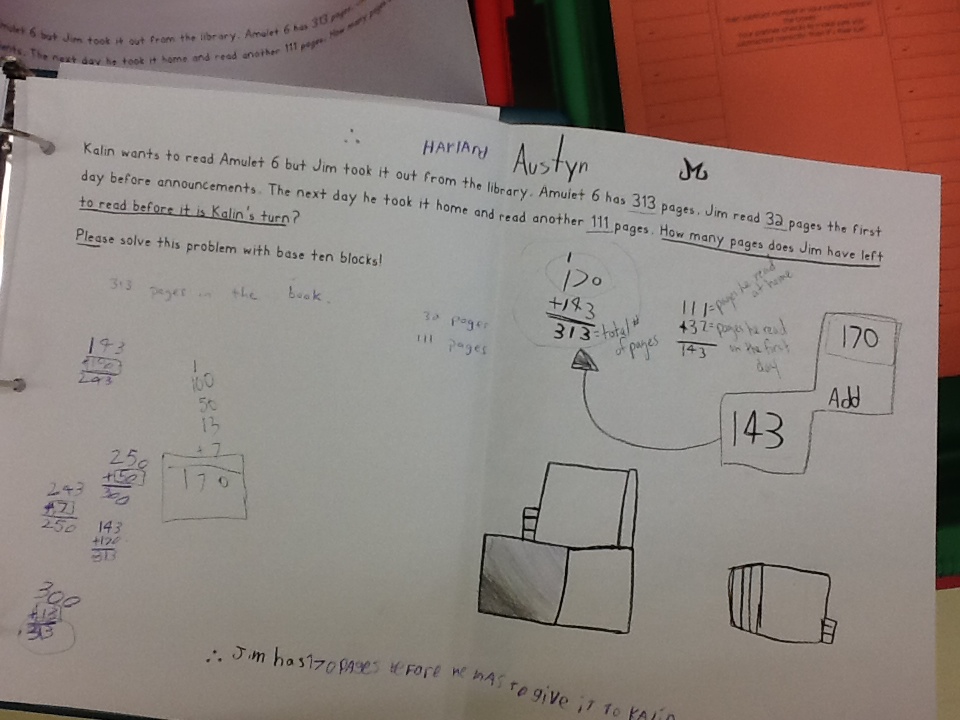 Amulet 6 but Jim took it out from the library. Amulet 6 has 313 pages.
The next day he took it home and read another 111 pages. How many pages
∴
HARLAND Austyn
Kalin wants to read Amulet 6 but Jim took it out from the library. Amulet 6 has 313 pages. Jim read 32 pages the first
day before announcements. The next day he took it home and read another 111 pages. How many pages does Jim have left
to read before it is Kalin's turn?
Please solve this problem with base ten blocks!
313 pages in the book.
32 pages
111 pages
1
170
+143
313 = total #
of pages
111 = pages he read
at home
+32 = pages he read
in the first
day
143
170
Add
143
143
+100
243
1
100
50
13
+7
170
250
+50
300
243
+7
250
143
+170
313
300
+13
313
∴ Jim has 170 pages before he has to give it to Kalin